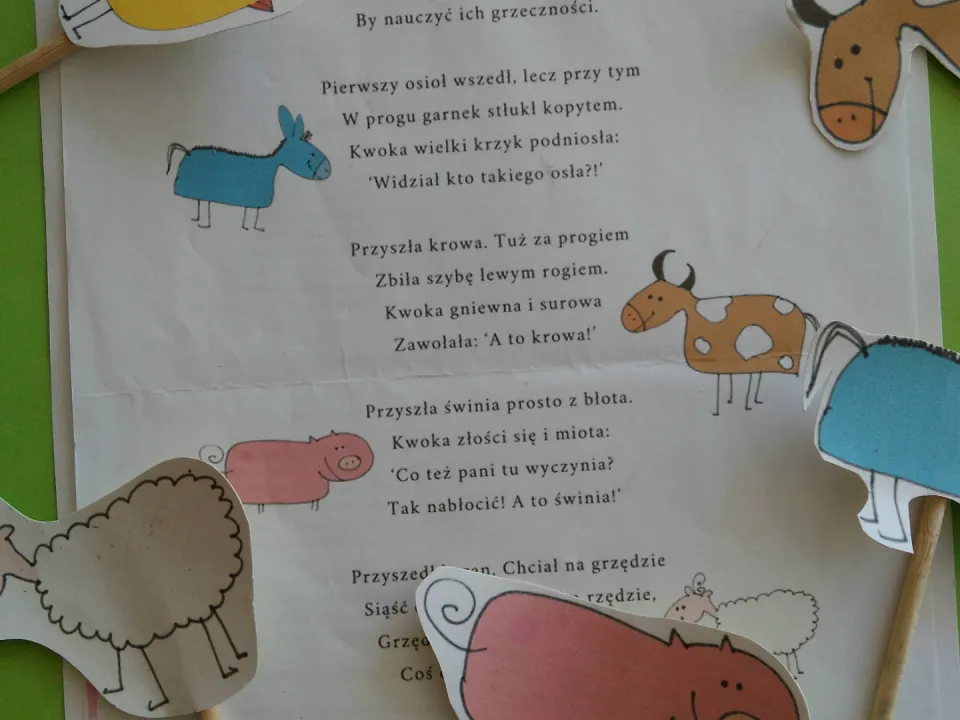 By nauczyć ich grzeczności.
Pierwszy osioł wszedł, lecz przy tym
W progu garnek stłukł kopytem.
Kwoka wielki krzyk podniosła:
‘Widział kto takiego osła?!’
Przyszła krowa. Tuż za progiem
Zbiła szybę lewym rogiem.
Kwoka gniewna i surowa
Zawołała: ‘A to krowa!’
Przyszła świnia prosto z błota.
Kwoka złości się i miota:
‘Co też pani tu wyczynia?
Tak nabłocić! A to świnia!’
Chciał na grzędzie
Siąść rzędzie,
Coś